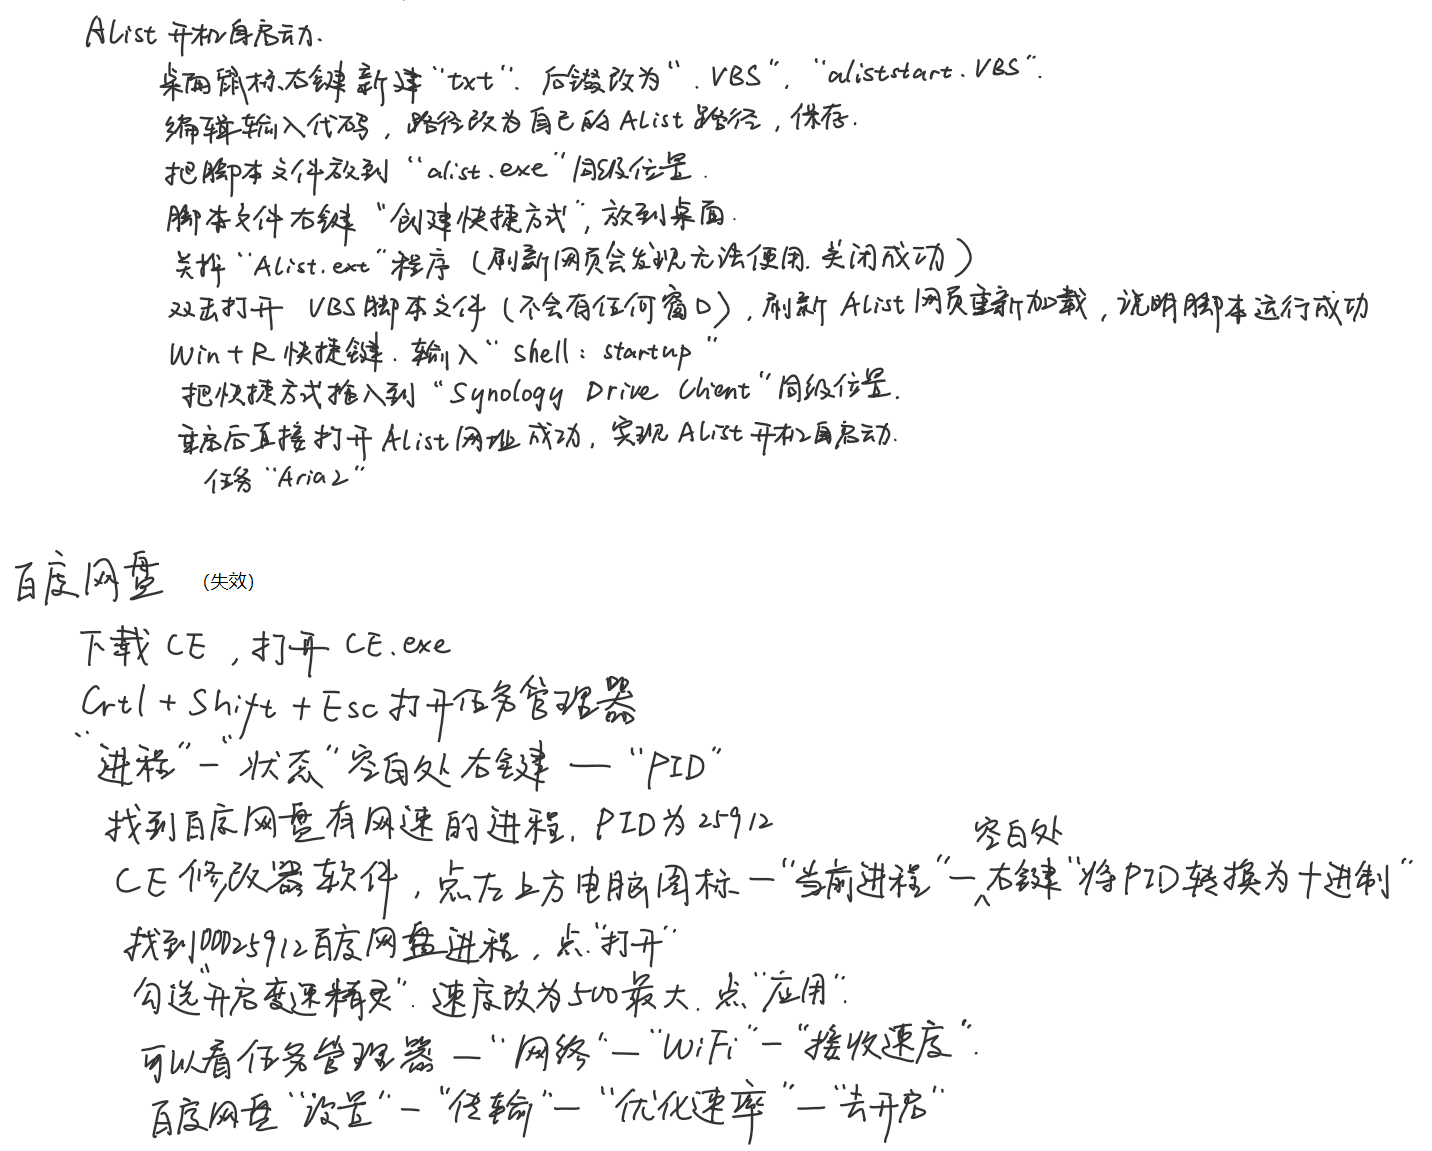 AList 开机自启动.
桌面鼠标右键新建“txt”. 后缀改为“.VBS”. “aliststart.VBS”.
编辑输入代码，路径改为自己的AList路径，保存.
把脚本文件放到“alist.exe”同级位置.
脚本文件右键“创建快捷方式”，放到桌面.
关掉“Alist.ext”程序（刷新网页会发现无法使用.关闭成功）
双击打开 VBS脚本文件（不会有任何窗口），刷新 AList网页重新加载，说明脚本运行成功
Win+R 快捷键. 输入“shell：startup”
把快捷方式拖入到“Synology Drive Client”同级位置.
重启后直接打开AList网址成功，实现AList开机自启动.
任务“Aria2”
百度网盘 （失效）
下载CE，打开CE.exe
Crtl+Shift+Esc打开任务管理器
“进程”—“状态”空白处右键 —“PID”
找到百度网盘有网速的进程，PID为25912
空白处
CE修改器软件，点左上方电脑图标—“当前进程”—^右键“将PID转换为十进制”
找到00025912百度网盘进程，点“打开”
勾选“开启变速精灵”. 速度改为500最大. 点“应用”.
可以看任务管理器—“网络”—“WiFi”—“接收速度”.
百度网盘“设置”—“传输”—“优化速率”—“去开启”